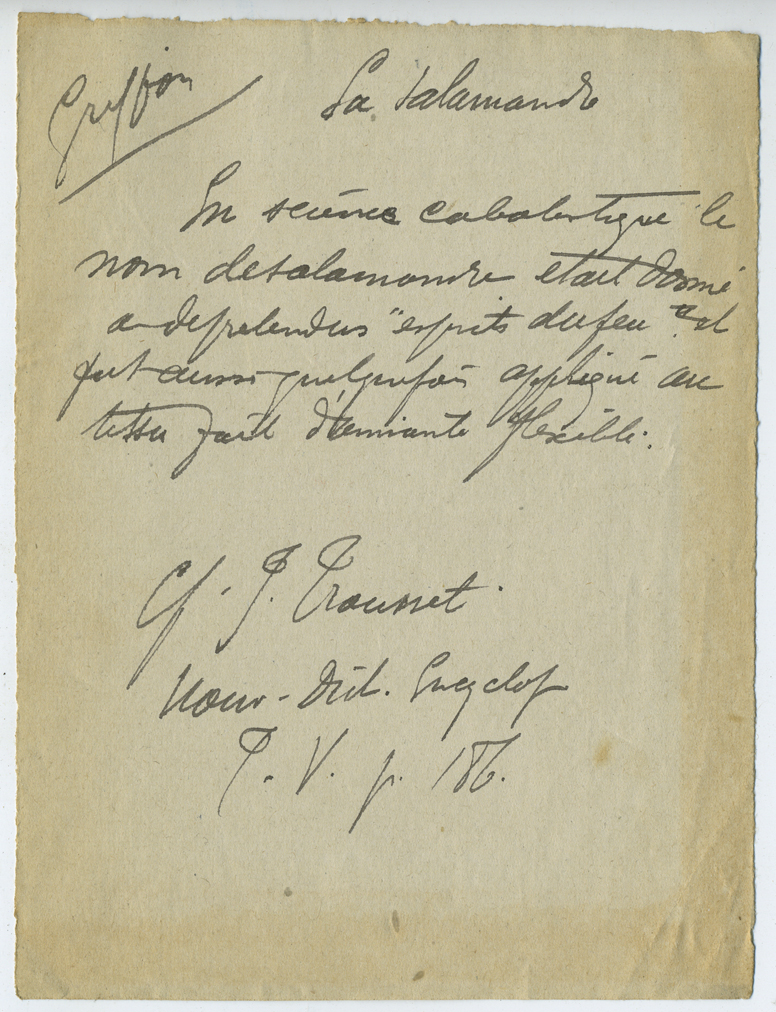 Griffon
La Salamandre
En science cabalistique le
nom de salamandre était donné
a de prétendus "esprits du feu" et
fut aussi quelquefois appliqué au
tissu fait d'amiante flexible.
Cf. J. Trousset.
Nouv. Dict. Encyclop
T. V. p. 186.